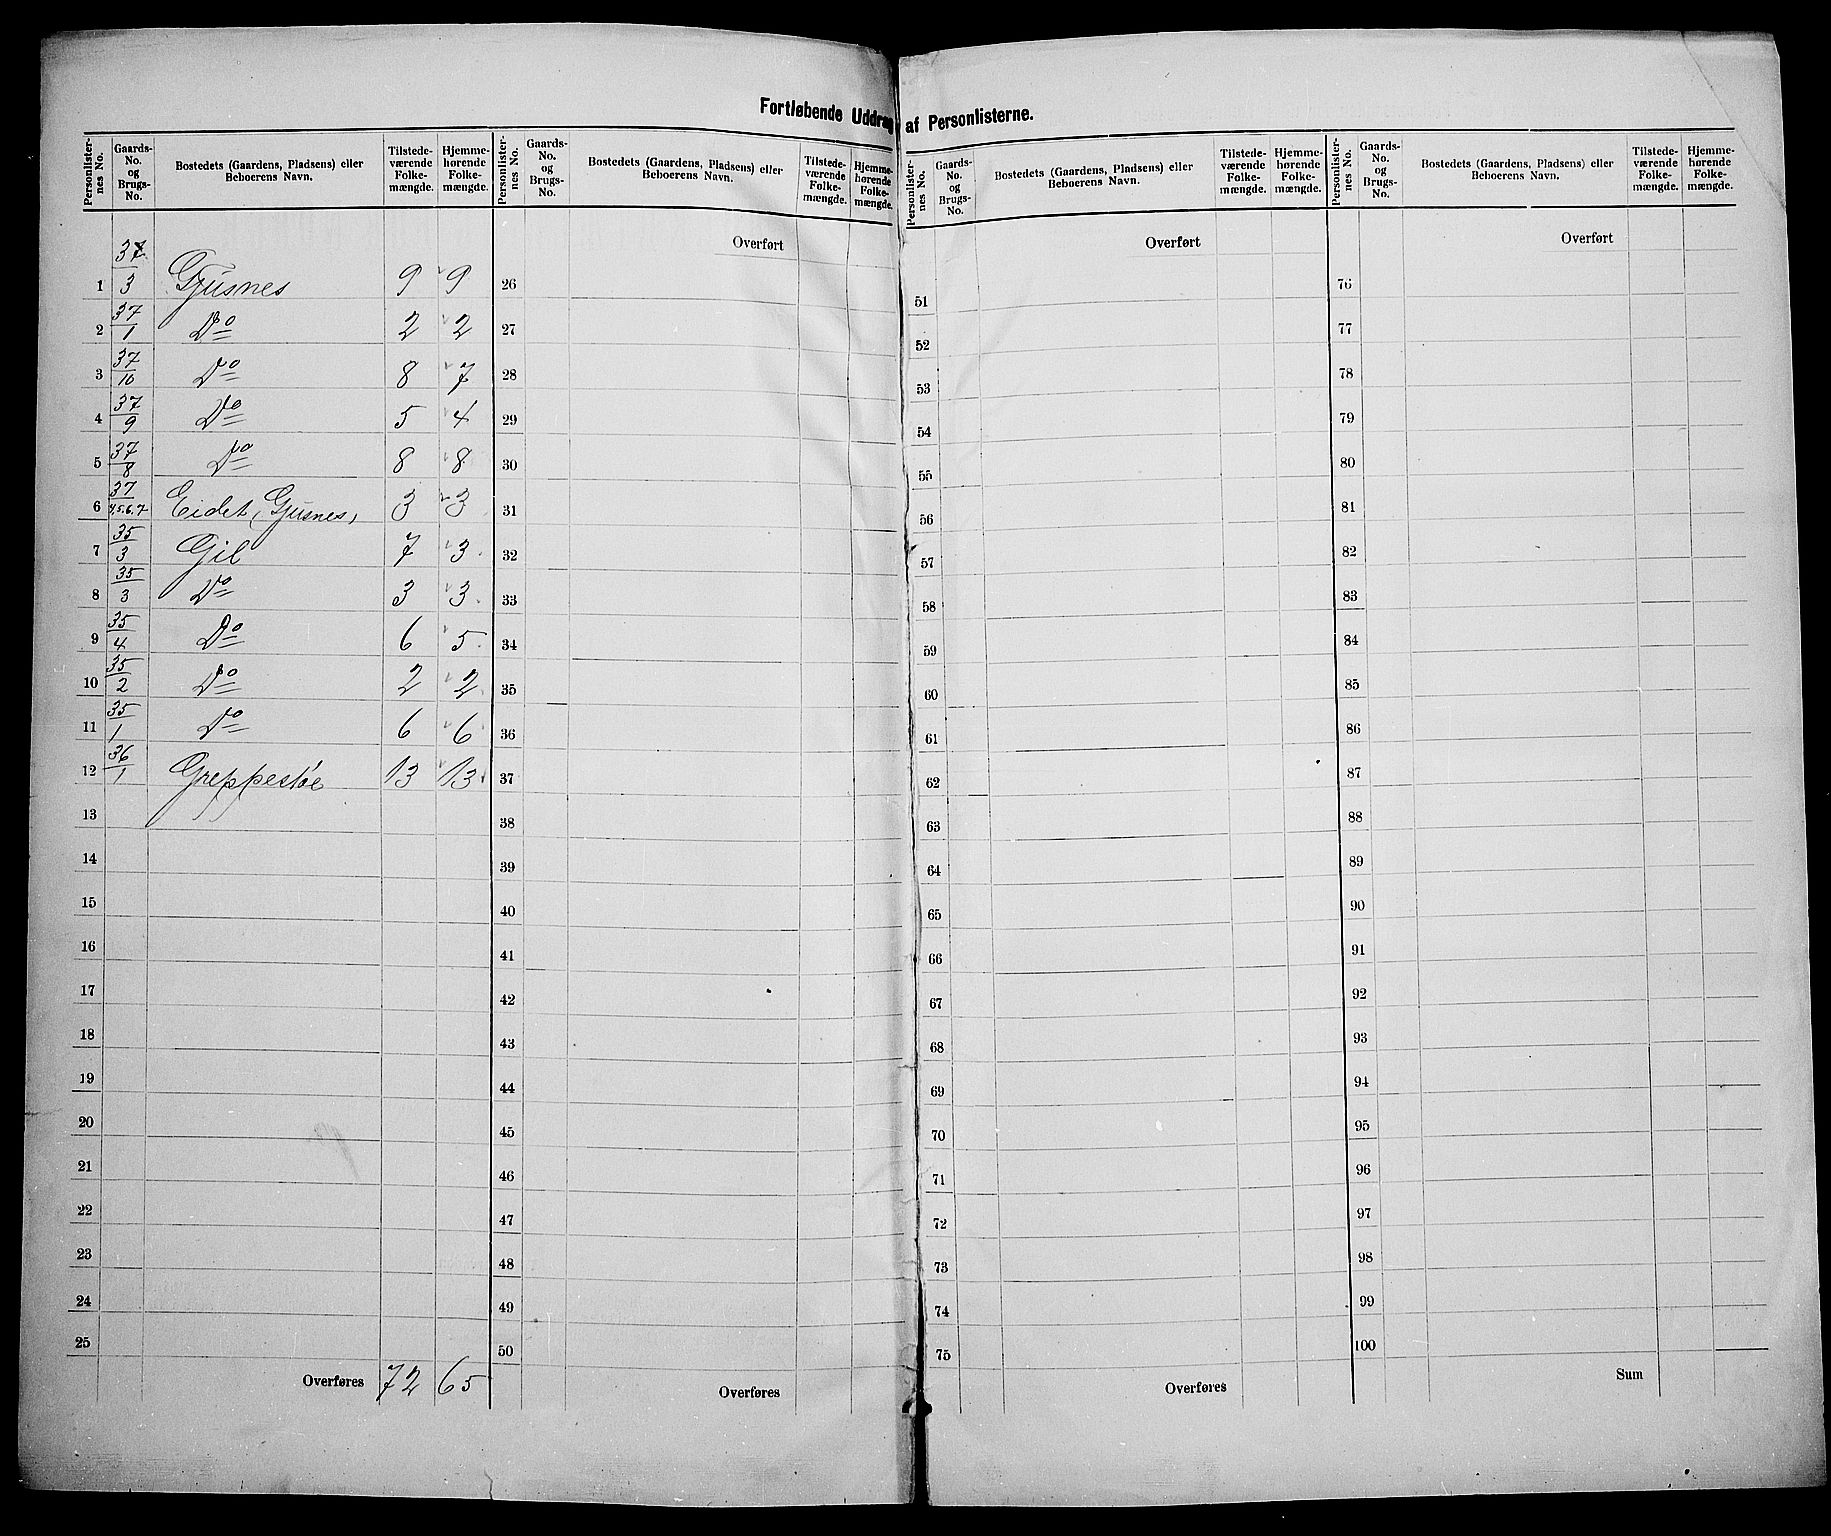 Fortløbende Uddrag af Personlisterne.
Personlister-nes No. | Gaards-No. og Brugs-No. | Bostedets (Gaardens, Pladsens) eller Beboerens Navn. | Tilstede-værende Folke-mængde. | Hjemme-hørende Folke-mængde.
1 37/3 Gjusnes 9 9
2 37/1 Do 2 2
3 37/10 Do 8 7
4 37/9 Do 5 4
5 37/8 Do 8 8
6 37/4.5.6.7 Eidet, (Gjusnes) 3 3
7 35/3 Gil 7 3
8 35/3 Do 3 3
9 35/4 Do 6 5
10 35/2 Do 2 2
11 35/1 Do 6 6
12 36/1 Greppestøe 13 13
13
14
15
16
17
18
19
20
21
22
23
24
25
Overføres 72 65
Personlister-nes No. | Gaards-No. og Brugs-No. | Bostedets (Gaardens, Pladsens) eller Beboerens Navn. | Tilstede-værende Folke-mængde. | Hjemme-hørende Folke-mængde.
Overført
26
27
28
29
30
31
32
33
34
35
36
37
38
39
40
41
42
43
44
45
46
47
48
49
50
Overføres
Personlister-nes No. | Gaards-No. og Brugs-No. | Bostedets (Gaardens, Pladsens) eller Beboerens Navn. | Tilstede-værende Folke-mængde. | Hjemme-hørende Folke-mængde.
Overført
51
52
53
54
55
56
57
58
59
60
61
62
63
64
65
66
67
68
69
70
71
72
73
74
75
Overføres
Personlister-nes No. | Gaards-No. og Brugs-No. | Bostedets (Gaardens, Pladsens) eller Beboerens Navn. | Tilstede-værende Folke-mængde. | Hjemme-hørende Folke-mængde.
Overført
76
77
78
79
80
81
82
83
84
85
86
87
88
89
90
91
92
93
94
95
96
97
98
99
100
Sum